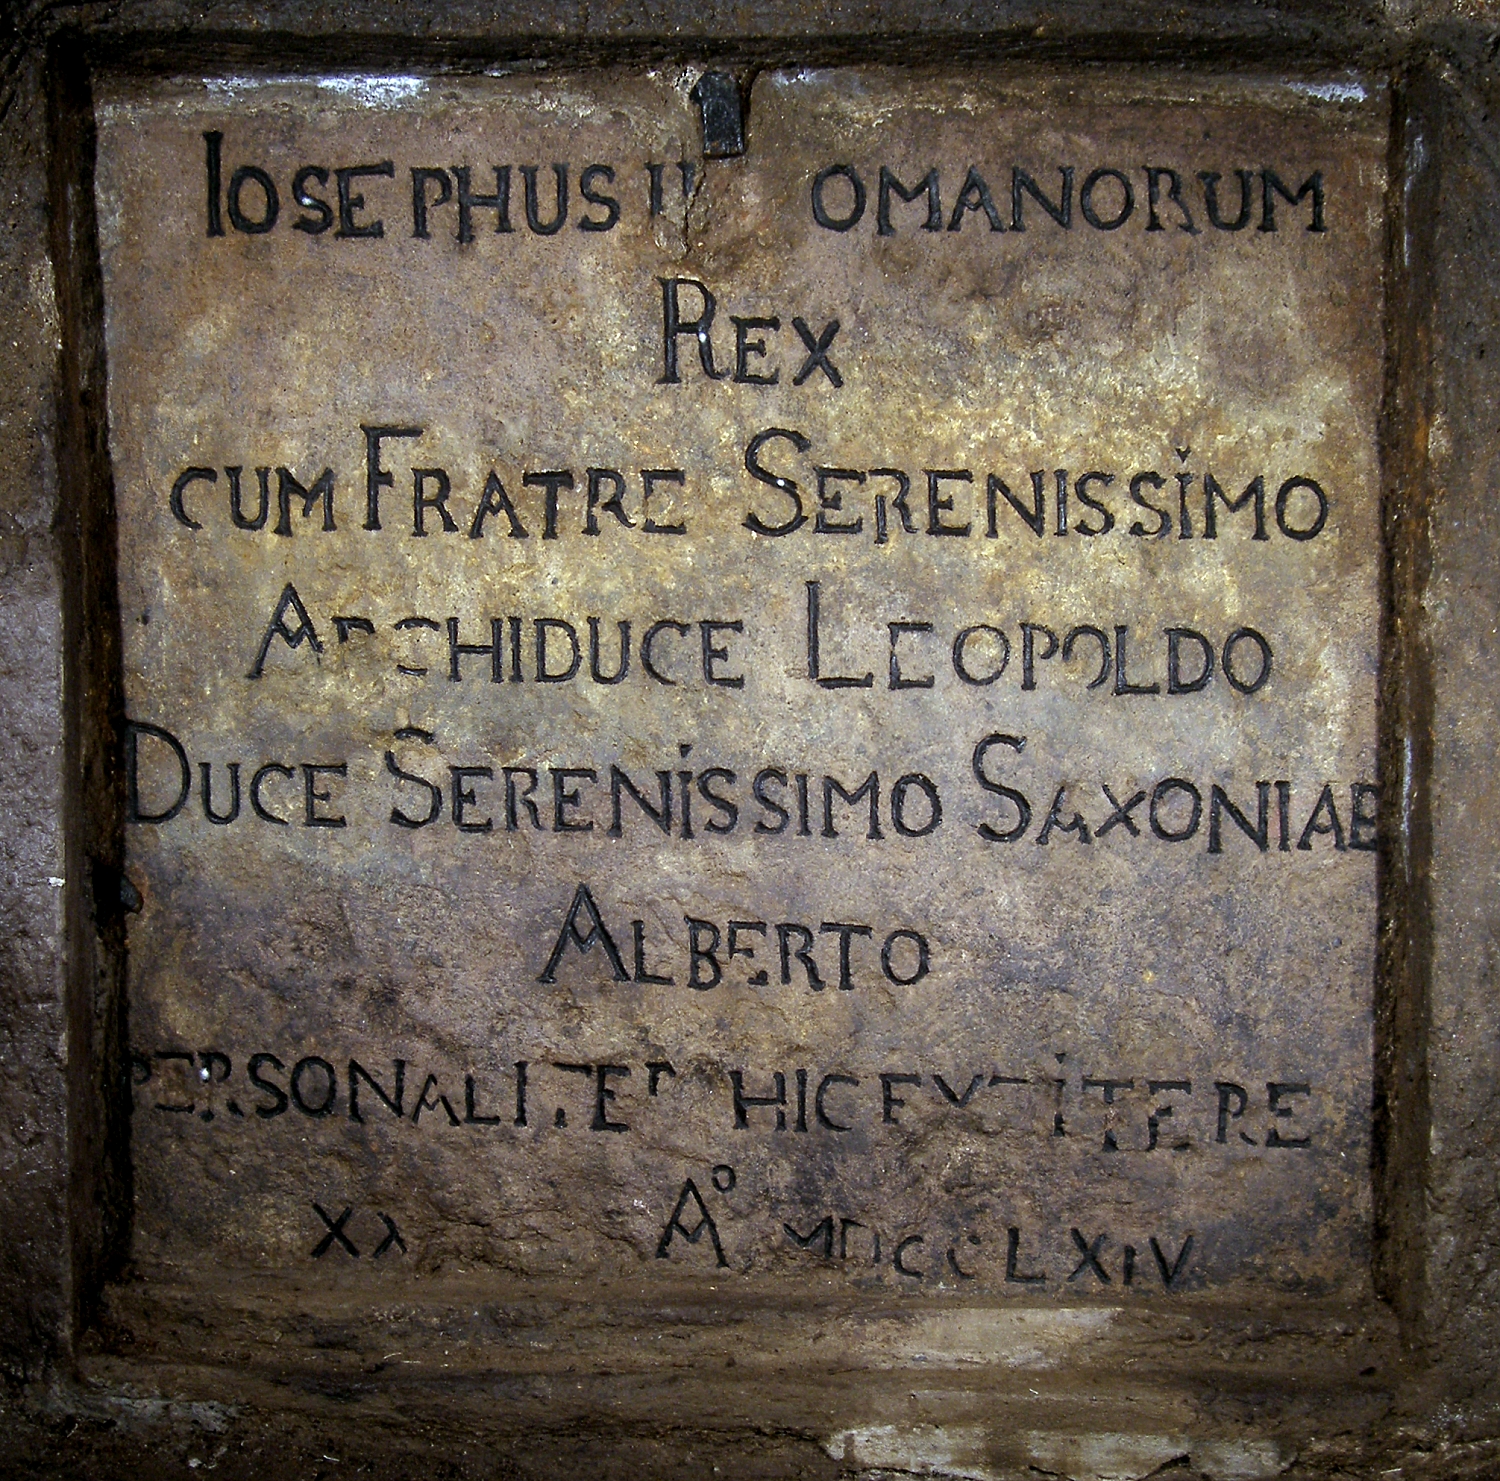 IOSEPHUS II OMANORUM
REX
CUM FRATRE SERENISSIMO
ARCHIDUCE LEOPOLDO
DUCE SERENISSIMO SAXONIAE
ALBERTO
PERSONALITER HIC EXTITERE
XX Aº MDCCLXIV